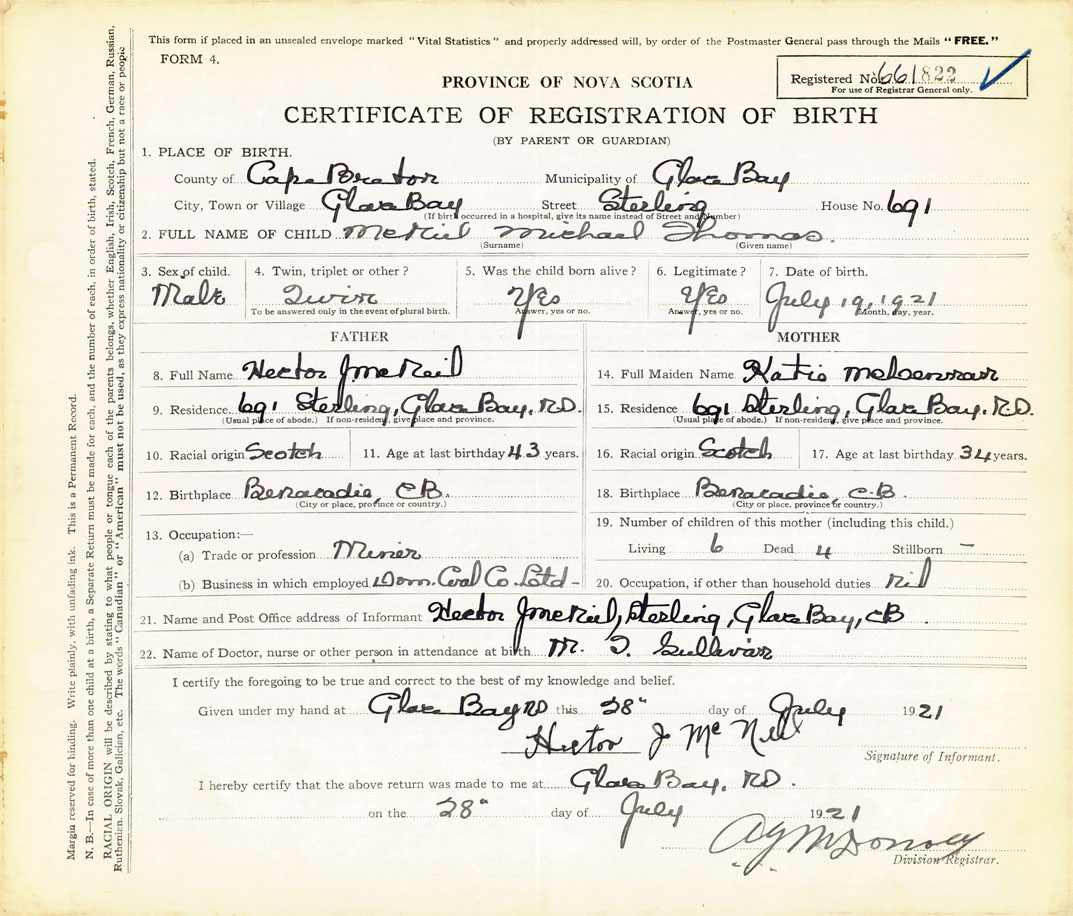 This form if placed in an unsealed envelope marked "Vital Statistics" and properly addressed will, by order of the Postmaster General pass through the Mails "FREE."
FORM 4.
Registered No. 661822
For use of Registrar General only.
PROVINCE OF NOVA SCOTIA
CERTIFICATE OF REGISTRATION OF BIRTH
(BY PARENT OR GUARDIAN)
1. PLACE OF BIRTH.
County of Cape Breton Municipality of Glace Bay
City, Town or Village Glace Bay Street Sterling House No. 691
(If birth occurred in a hospital, give its name instead of Street and Number)
2. FULL NAME OF CHILD McNeil Michael Thomas.
(Surname) (Given name)
3. Sex of child. 4. Twin, triplet or other? 5. Was the child born alive? 6. Legitimate? 7. Date of birth.
Male Twin Yes Yes July 19, 1921
To be answered only in the event of plural birth. Answer, yes or no. Answer, yes or no. Month, day, year.
FATHER MOTHER
8. Full Name Hector J McNeil 14. Full Maiden Name Katie
9. Residence 691 Sterling, Glace Bay, R.D. 15. Residence 691 Sterling, Glace Bay, R.D.
(Usual place of abode.) If non-resident, give place and province. (Usual place of abode.) If non-resident, give place and province.
10. Racial origin Scotch 11. Age at last birthday 43 years. 16. Racial origin Scotch 17. Age at last birthday 34 years.
12. Birthplace Benacadie, CB. 18. Birthplace Benacadie, C.B.
(City or place, province or country.) (City or place, province or country.)
13. Occupation:— 19. Number of children of this mother (including this child.)
(a) Trade or profession Miner Living 6 Dead 4 Stillborn —
(b) Business in which employed Dom. Coal Co. Ltd - 20. Occupation, if other than household duties nil
21. Name and Post Office address of Informant Hector J McNeil, Sterling, Glace Bay, CB
22. Name of Doctor, nurse or other person in attendance at birth M. T. Sullivan
I certify the foregoing to be true and correct to the best of my knowledge and belief.
Given under my hand at Glace Bay RD this 28" day of July 1921
Hector J McNeil
Signature of Informant.
I hereby certify that the above return was made to me at Glace Bay, RD.
on the 28" day of July 1921
Division Registrar.
Margin reserved for binding. Write plainly, with unfading ink. This is a Permanent Record.
N. B.—In case of more than one child at a birth, a Separate Return must be made for each, and the number of each, in order of birth, stated.
RACIAL ORIGIN will be described by stating to what people or tongue each of the parents belongs, whether English, Irish, Scotch, French, German, Russian,
Ruthenian, Slovak, Galician, etc. The words "Canadian" or "American" must not be used, as they express nationality or citizenship but not a race or people